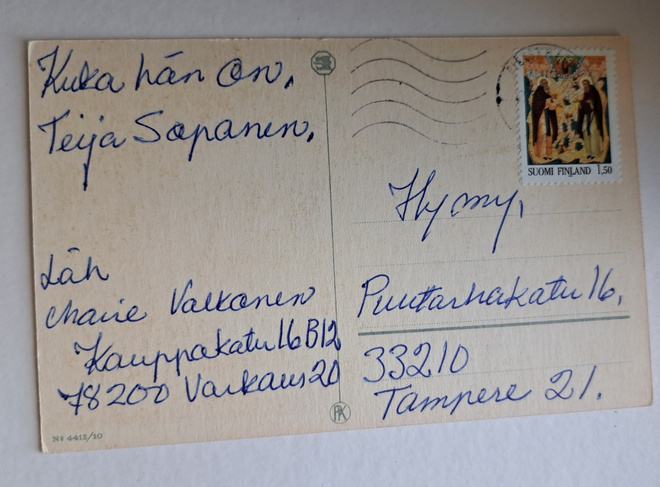 Kuka hän on,
Teija Sopanen,
Läh
Maire Valkonen
Kauppakatu 16 B 12
78200 Varkaus 20
Nº 4412/10
SUOMI FINLAND 1,50
Hymy,
Puutarhakatu 16,
33210
Tampere 21.